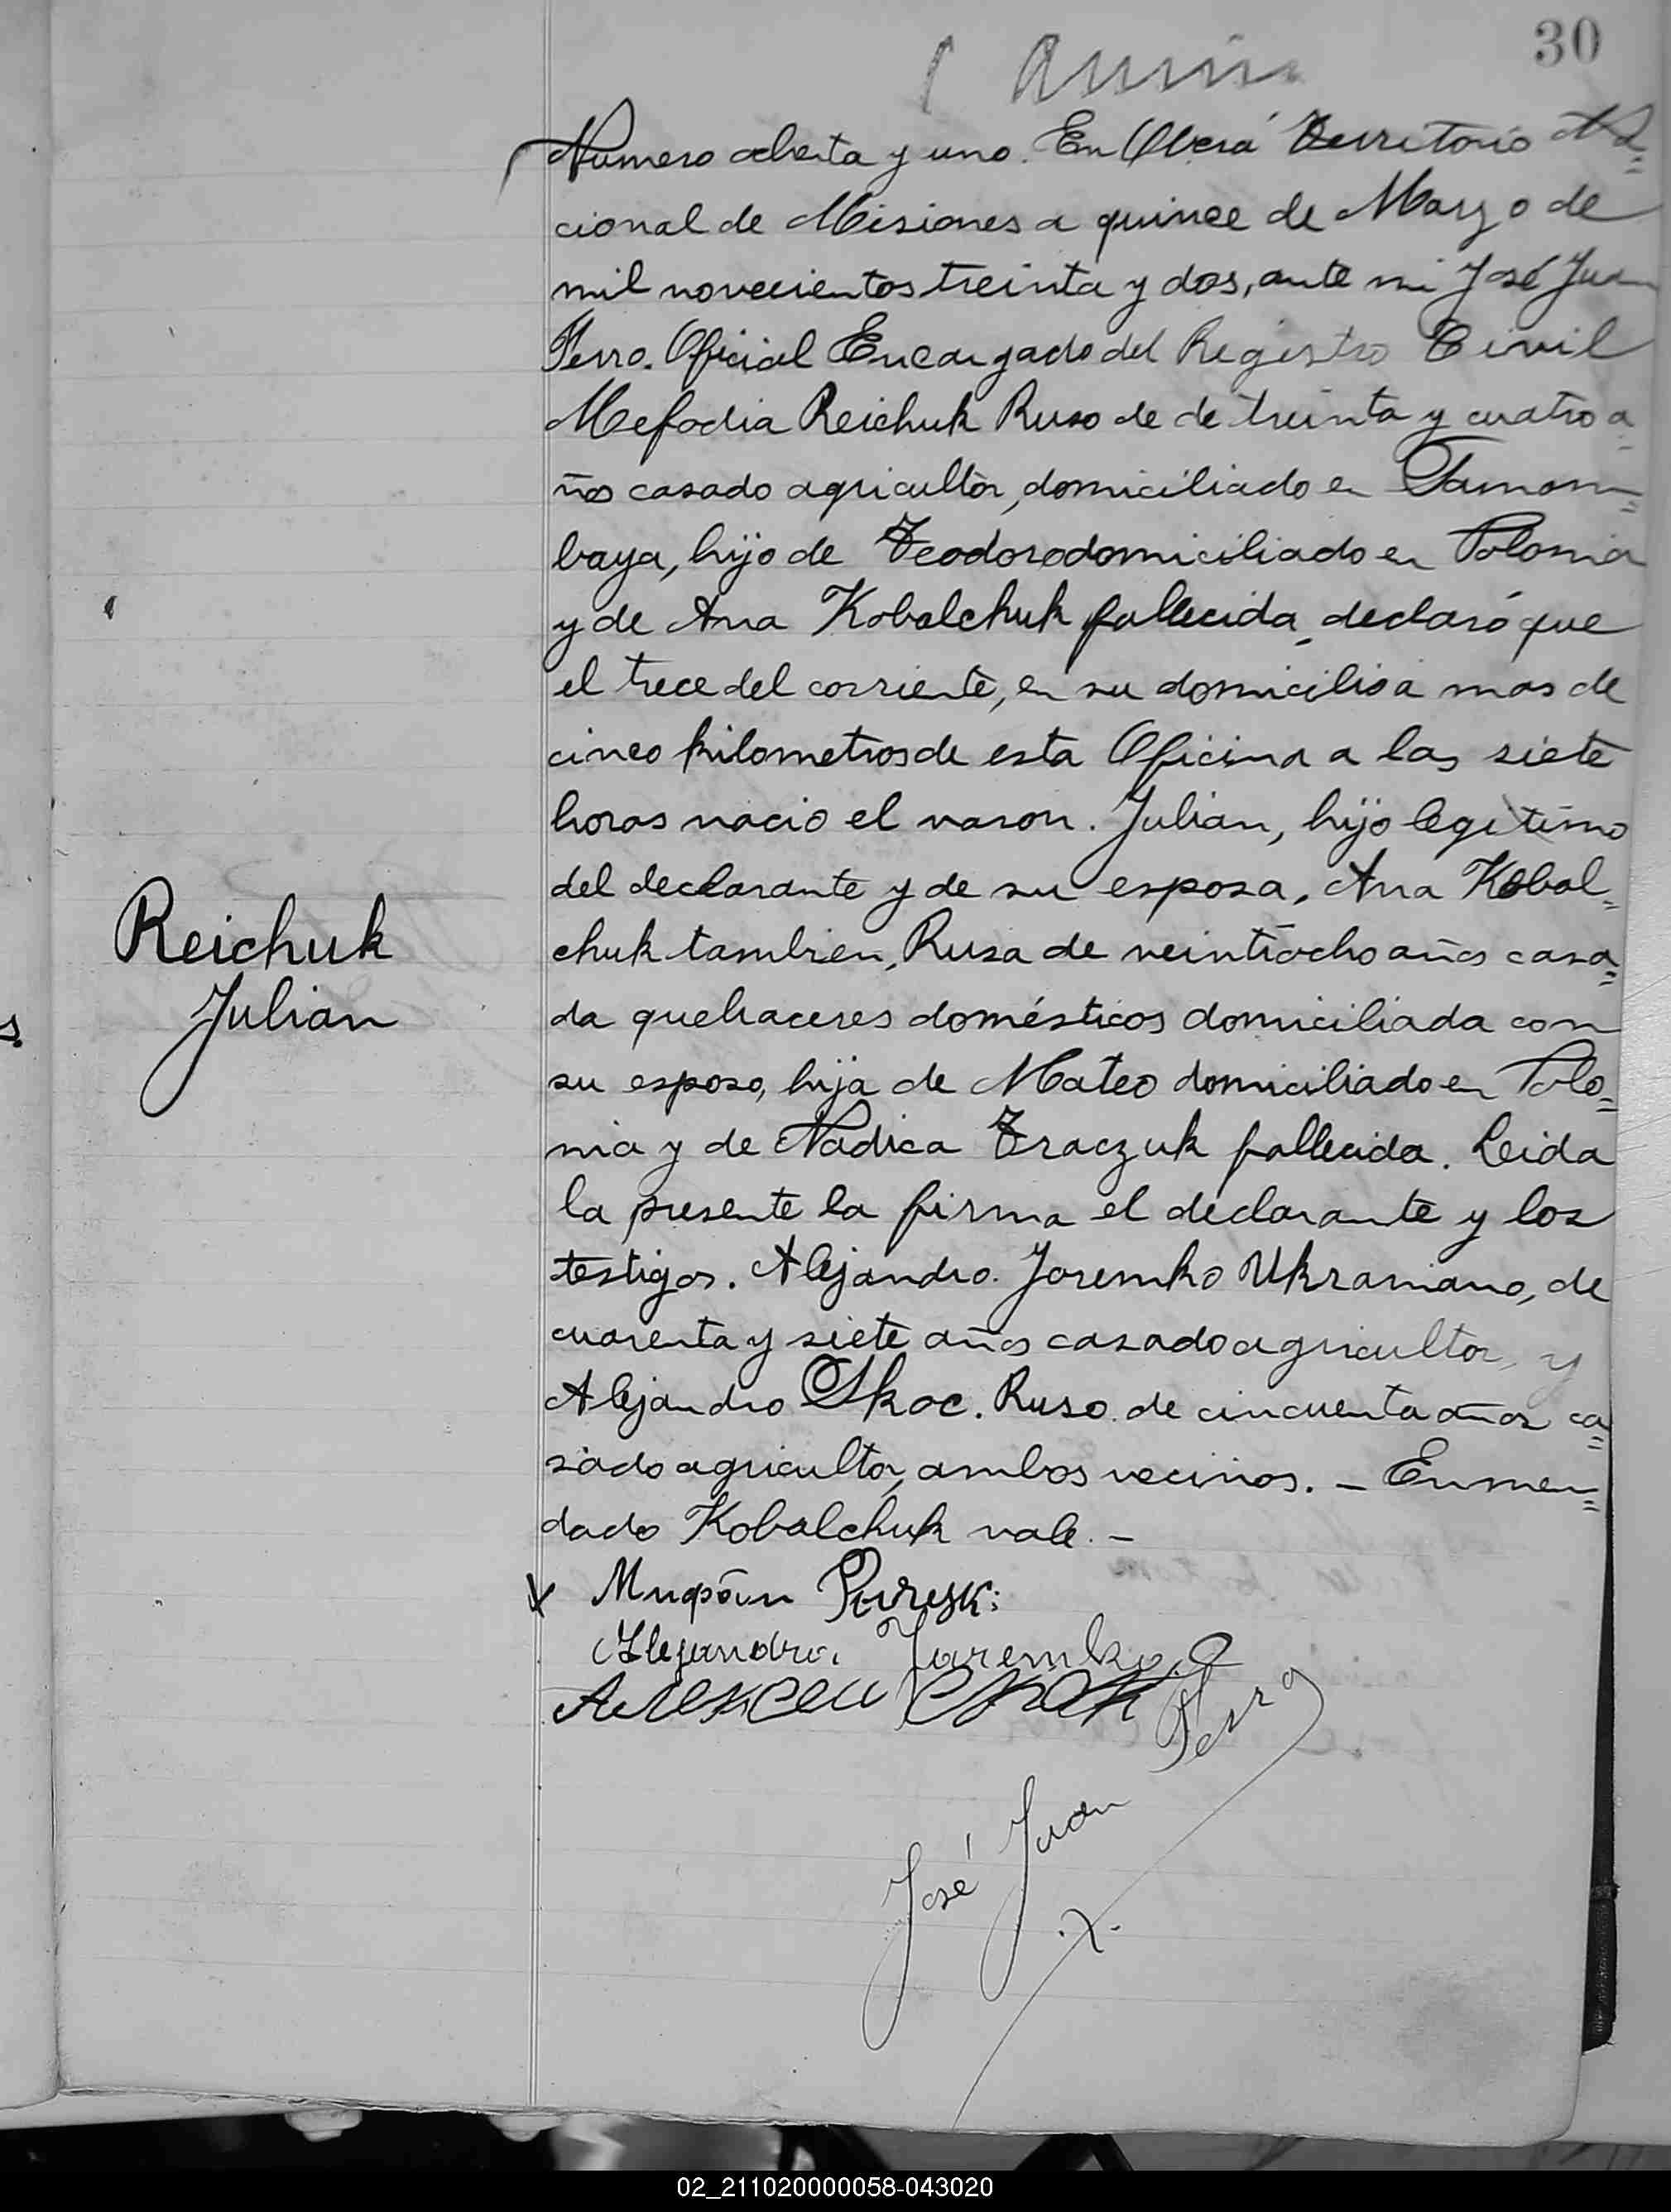 30
Numero ochenta y uno. En Oberá Territorio Na=
cional de Misiones a quince de Marzo de
mil novecientos treinta y dos, ante mi José Juan
Ferro. Oficial Encargado del Registro Civil
Mefodia Reichuk Ruso de de treinta y cuatro a=
ños casado agricultor, domiciliado en Tamam=
baya, hijo de Teodoro domiciliado en Polonia
y de Ana Kobalchuk fallecida, declaró que
el trece del corriente, en su domicilio a mas de
cinco kilometros de esta Oficina a las siete
horas nacio el varon. Julian, hijo legitimo
del declarante y de su esposa, Ana Kobal=
chuk tambien, Rusa de veintiocho años casa=
da quehaceres domésticos domiciliada con
su esposo, hija de Mateo domiciliado en Polo=
nia y de Nadica Traczuk fallecida. Leida
la presente la firma el declarante y los
testigos. Alejandro. Joremko Ukraniano, de
cuarenta y siete años casado agricultor, y
Alejandro Skoc. Ruso de cincuenta años ca=
sado agricultor, ambos vecinos. — Enmen=
dado Kobalchuk vale. —
Reichuk
Julian
Alejandro Jaremko
José Juan Ferro
02_211020000058-043020